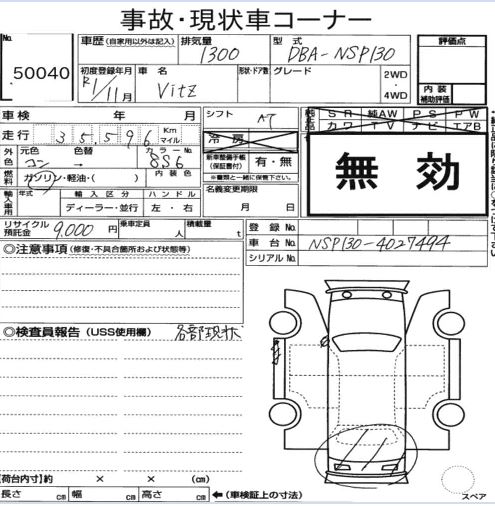 事故・現状車コーナー
No. 50040
車歴 (自家用以外は記入)
排気量 1300
型式 DBA-NSP130
評価点
初度登録年月 R1/11月
車名 Vitz
形状・ドア数
グレード
2WD・4WD
内装補助評価
車検 年 月
シフト AT
純正品 SR 純AW PS PW
カワ TV ナビ エアB
走行 35,596 Km マイル
冷房
外色 元色 コン 色替 → カラーNo. 8S6
新車整備手帳(保証書付) 有・無
※書類と一緒に保管下さい。
無効
燃料 ガソリン・軽油・( )
内装色
名義変更期限 月 日
輸入車用 年式 輸入区分 ハンドル
ディーラー・並行 左・右
リサイクル預託金 9,000 円
乗車定員 人
積載量 t
登録No.
車台No. NSP130-4027494
シリアルNo.
◎注意事項 (修復・不具合箇所および状態等)
◎検査員報告 (USS使用欄) 各部現状
【荷台内寸】約 × × (cm)
長さ cm 幅 cm 高さ cm ←(車検証上の寸法)
スペア